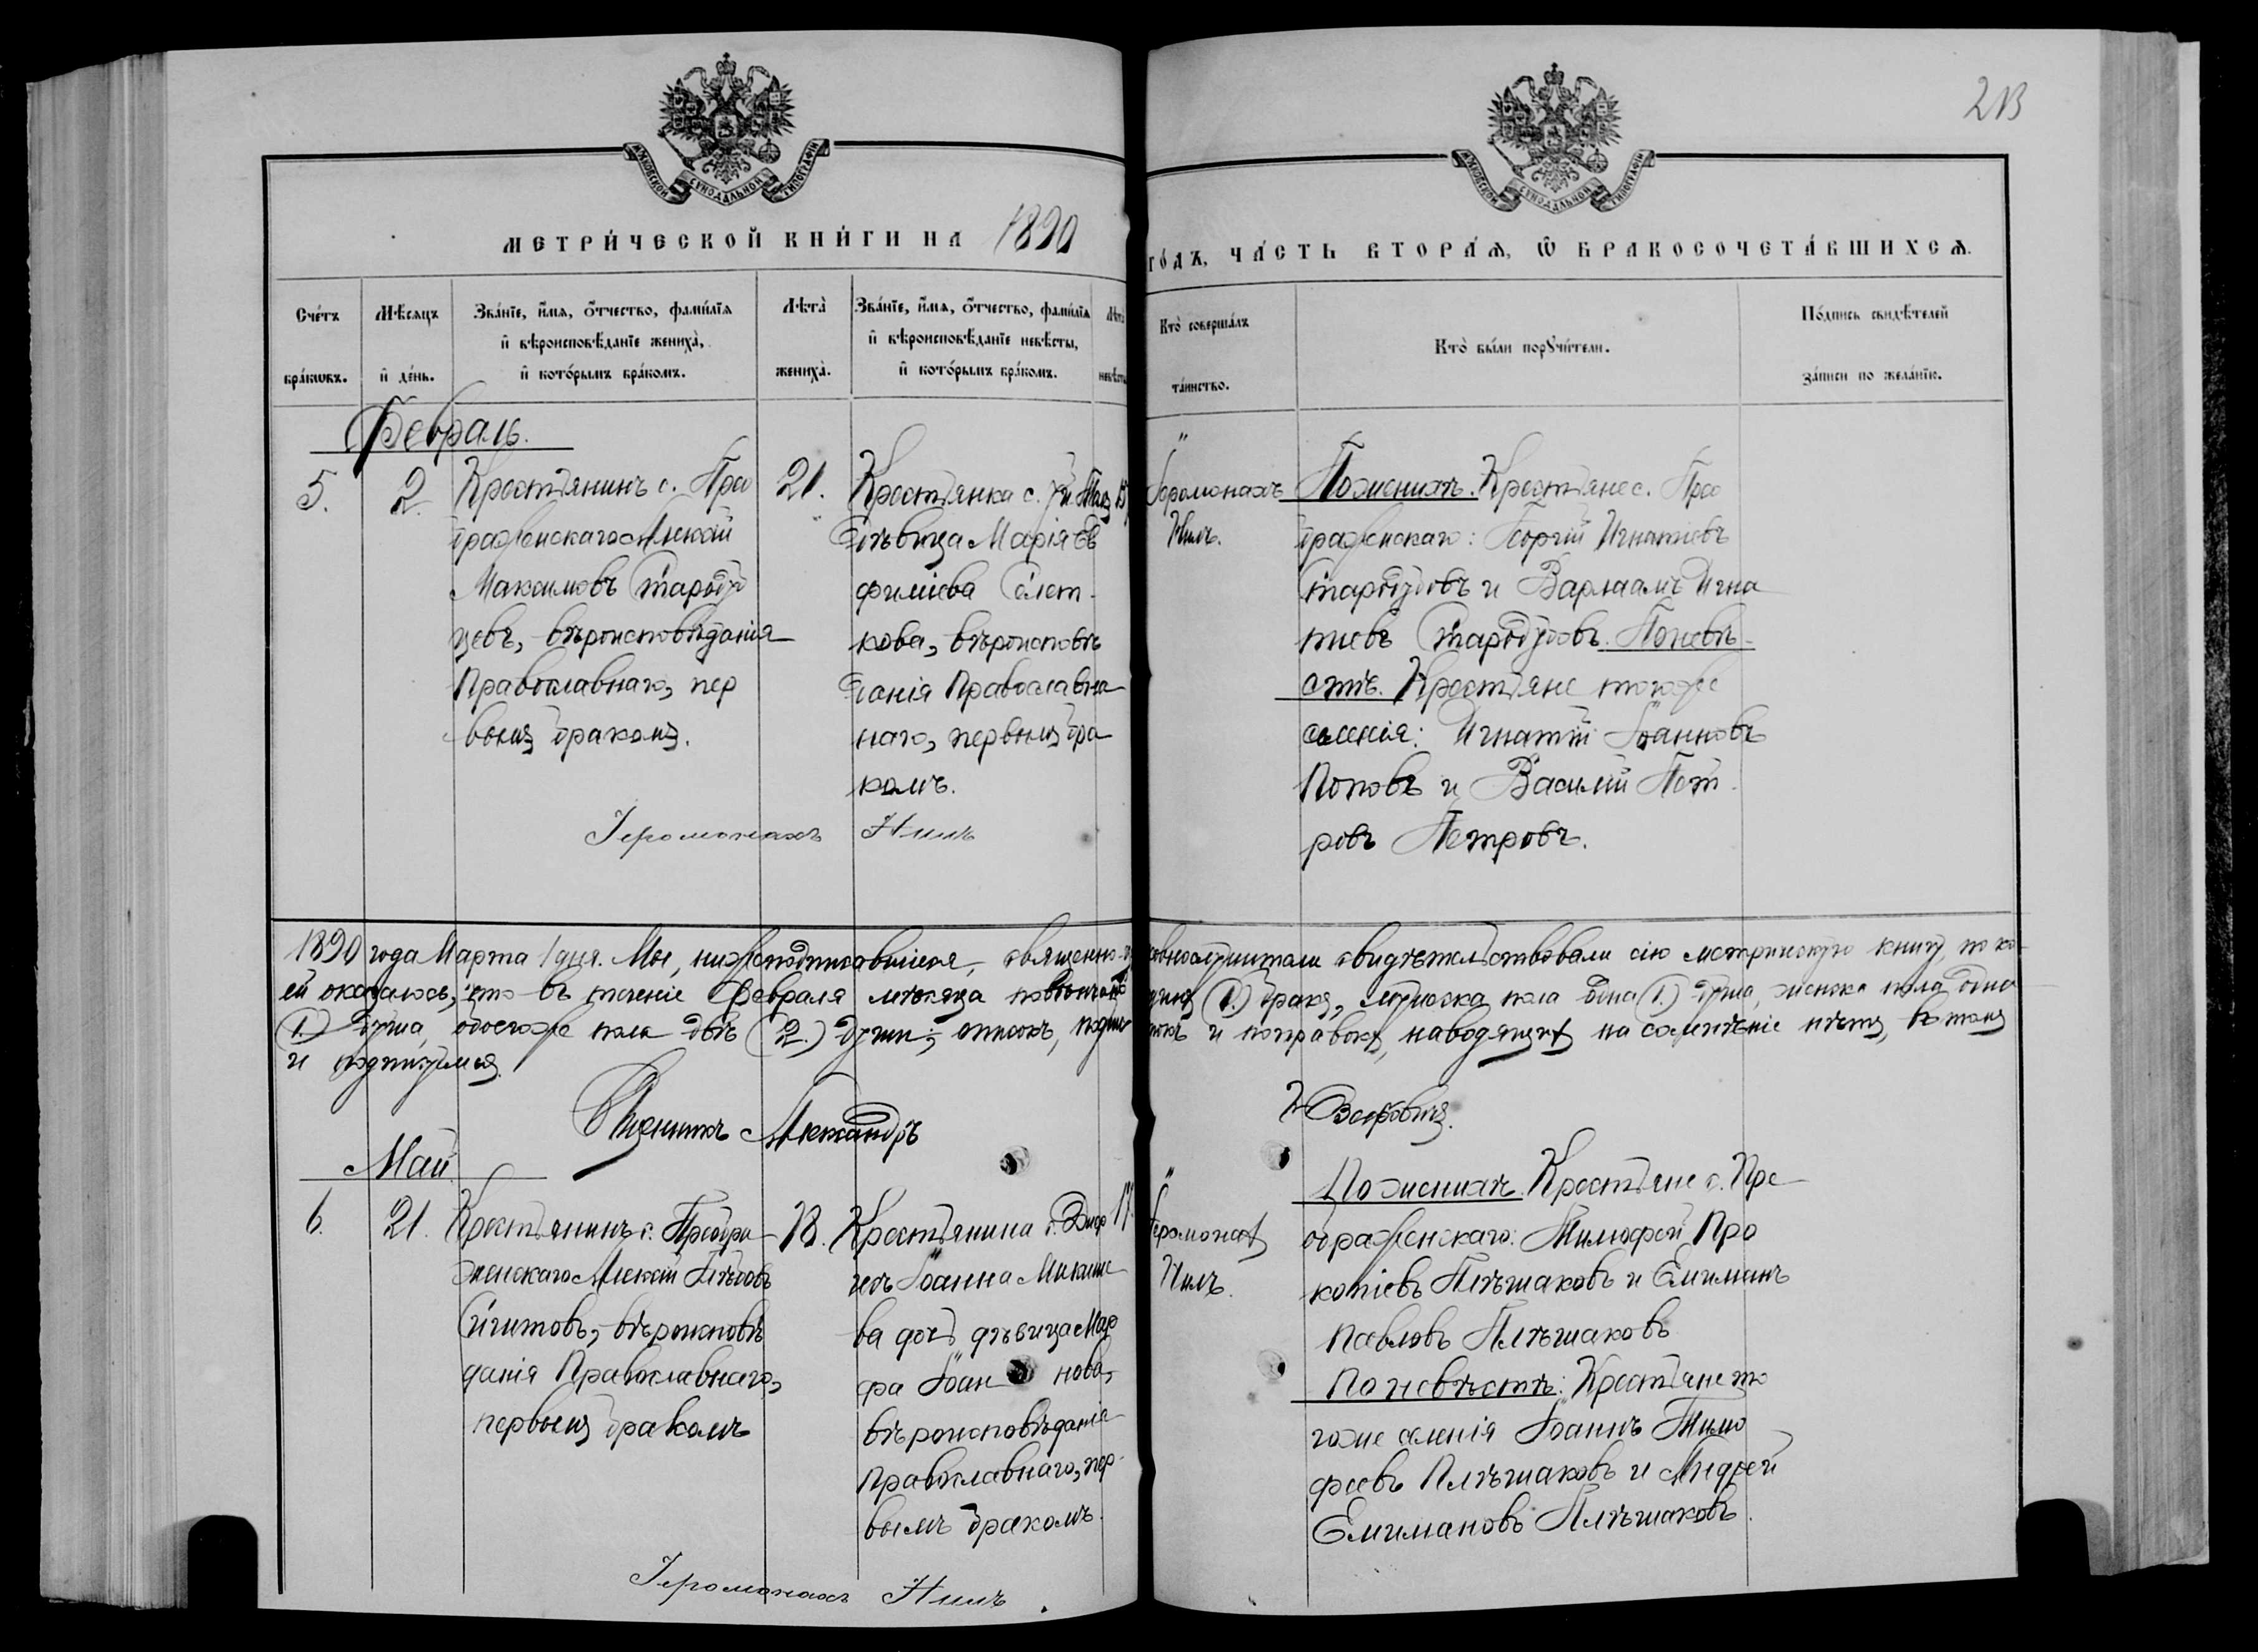 213
МОСКОВСКОЙ СѴНОДАЛЬНОЙ ТИПОГРАФІИ
МОСКОВСКОЙ СѴНОДАЛЬНОЙ ТИПОГРАФІИ
МЕТРИ́ЧЕСКОЙ КНИ́ГИ НА 1890
ГО́ДЪ, ЧА́СТЬ ВТОРА́Ѧ, Ѽ БРАКОСОЧЕТА́ВШИХСѦ.
Сче́тъ
бра́кѡвъ.
Мѣ́сѧцъ
и҆ де́нь.
Зва́нїе, и҆́мѧ, ѻ҆́тчество, фами́лїѧ
и҆ вѣроисповѣ́данїе жениха̀,
и҆ кото́рымъ бра́комъ.
Лѣта̀
жениха̀.
Зва́нїе, и҆́мѧ, ѻ҆́тчество, фами́лїѧ
и҆ вѣроисповѣ́данїе невѣ́сты,
и҆ кото́рымъ бра́комъ.
Кто̀ соверша́лъ
та́инство.
Кто̀ бы́ли порꙋчи́тели.
По́дпись свидѣ́телей
за́писи по жела́нїю.
Февраль.
5.
2.
Крестьянинъ с. Прео
браженскаго Алексѣй
Максимовъ Старобу
цевъ, вѣроисповѣданія
Православнаго, пер
вымъ бракомъ.
21.
Крестьянка с.
дѣвица Марія Ев
фиміева Слет
кова, вѣроисповѣ
данія Православна
наго, первымъ бра
комъ.
Іеромонахъ
Нилъ.
По женихѣ. Крестьяне с. Прео
браженскаго: Георгій Игнатіевъ
Старобубовъ и Варлаамъ Игна
тіевъ Старобубовъ. По невѣ
стѣ. Крестьяне тогоже
селенія: Игнатій Іоанновъ
Поповъ и Василій Пет
ровъ Петровъ.
Іеромонахъ Нилъ
1890 года Марта 1 дня. Мы, нижеподписавшіеся, священно-церковнослужители свидѣтельствовали сію метрическую книгу, по ко
ей оказалось, что въ теченіе Февраля мѣсяца повѣнчано одинъ (1.) бракъ, мужеска пола одна (1.) душа, женска пола одна
(1.) душа, обоегоже пола двѣ (2.) души; описокъ, подчистокъ и поправокъ, наводящихъ на сомнѣніе нѣтъ, въ томъ
и подпишемся.
Священникъ Александръ
Май.
6.
21.
Крестьянинъ с. Преобра
женскаго Алексѣй Глѣбовъ
вѣроисповѣ
данія Православнаго,
первымъ бракомъ
18.
Крестьянина с.
Іоанна Микише
ва дочь дѣвица Мар
фа Іоаннова,
вѣроисповѣданія
Православнаго, пер
вымъ бракомъ.
17.
Іеромонахъ
Нилъ.
По женихѣ. Крестьяне с. Пре
ображенскаго: Тимофей Про
копіевъ Плѣшаковъ и Емиліанъ
Павловъ Плѣшаковъ
По невѣстѣ: Крестьяне то
гоже селенія Іоаннъ Тимо
феевъ Плѣшаковъ и Андрей
Емиліановъ Плѣшаковъ.
Іеромонахъ Нилъ